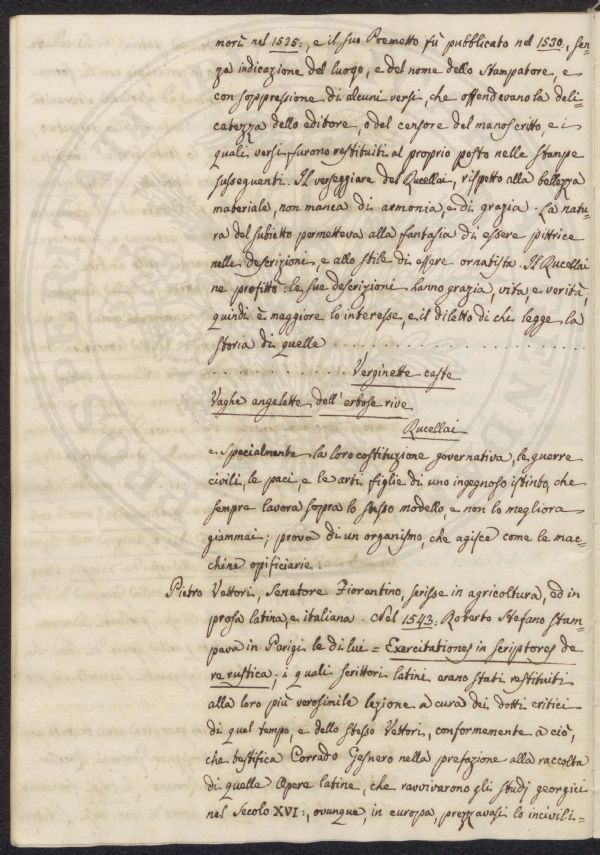 morì nel 1525:, e il suo Poemetto fù pubblicato nel 1530:, sen=
za indicazione del luogo, e del nome dello Stampatore, e
con soppressione di alcuni versi, che offendevano la deli=
catezza dello editore, o del censore del manoscritto, e i
quali versi furono restituiti al proprio posto nelle stampe
susseguenti. Il verseggiare del Rucellai, rispetto alla bellezza
materiale, non manca di armonia, e di grazia. La natu=
ra del subietto permetteva alla fantasia di essere pittrice
nelle descrizioni, e allo stile di essere ornatista. Il Rucellai
ne profittò: le sue descrizioni hanno grazia, vita, e verità,
quindi è maggiore lo interesse, e il diletto di chi legge la
storia di quelle . . . . . . . . . . . . . . . . . .
. . . . . . . . . . Verginette caste
Vaghe angelette dell'erbose rive
Rucellai
e specialmente la loro costituzione governativa, le guerre
civili, le paci, e le arti figlie di uno ingegnoso istinto, che
sempre lavora sopra lo stesso modello, e non lo megliora
giammai; prova di un organismo, che agisce come le mac=
chine opificiarie.
Pietro Vettori, Senatore Fiorentino, scrisse in agricoltura, ed in
prosa latina, e italiana. Nel 1543: Roberto Stefano stam=
pava in Parigi le di lui = Exercitationes in scriptores de
re rustica; i quali scrittori latini erano stati restituiti
alla loro più verosimile lezione a cura dei dotti critici
di quel tempo, e dello stesso Vettori, conformemente a ciò,
che testifica Corrado Gesnero nella prefazione alla raccolta
di quelle Opere latine, che ravvivarono gli studj georgici
nel Secolo XVI:, ovunque, in europa, prezzavasi lo incivili=